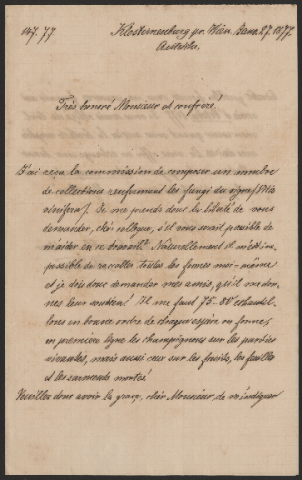 147.77 Klosterneuburg pr Wien. Janv. 27. 1877.
Autriche.
Très honoré Monsieur et confrère!
J'ai reçu la commission de composer un nombre
de collections renfermant les fungi du vigne (Vitis
vinifera). Je me prends donc la liberté de vous
demander, cher collègue, s'il vous serait possible de
m'aider en ce travail. Naturellement il m'est im-
possible de recueillir toutes les formes moi-même
et je dois donc demander mes amis, qu'il me don-
nent leur soutien! Il me faut 75-80 échantil-
lons en bonne ordre de chaque espèce ou forme,
en première ligne les champignons sur les parties
vivantes, mais aussi ceux sur les fruits, les feuilles
et les sarments morts!
Veuillez donc avoir la grace, cher Monsieur, de m'indiquer